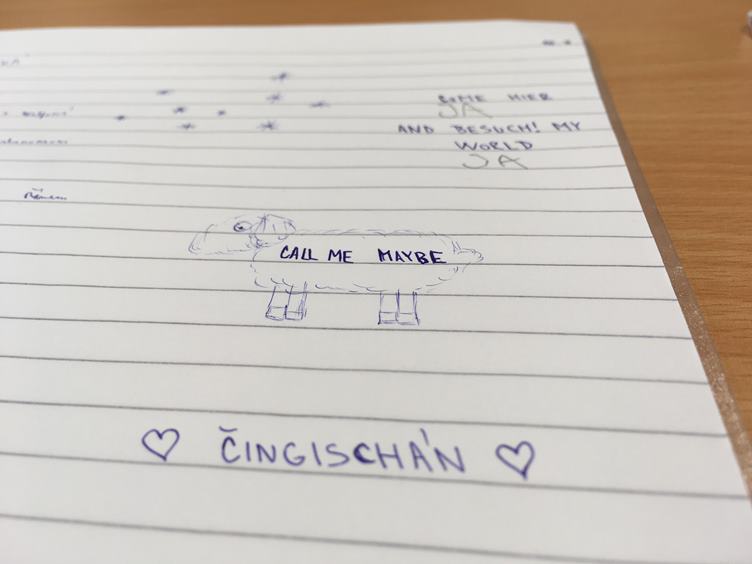 COME HIER
JA
AND BESUCH! MY
WORLD
JA
CALL ME MAYBE
♡ ČINGISCHÁN ♡